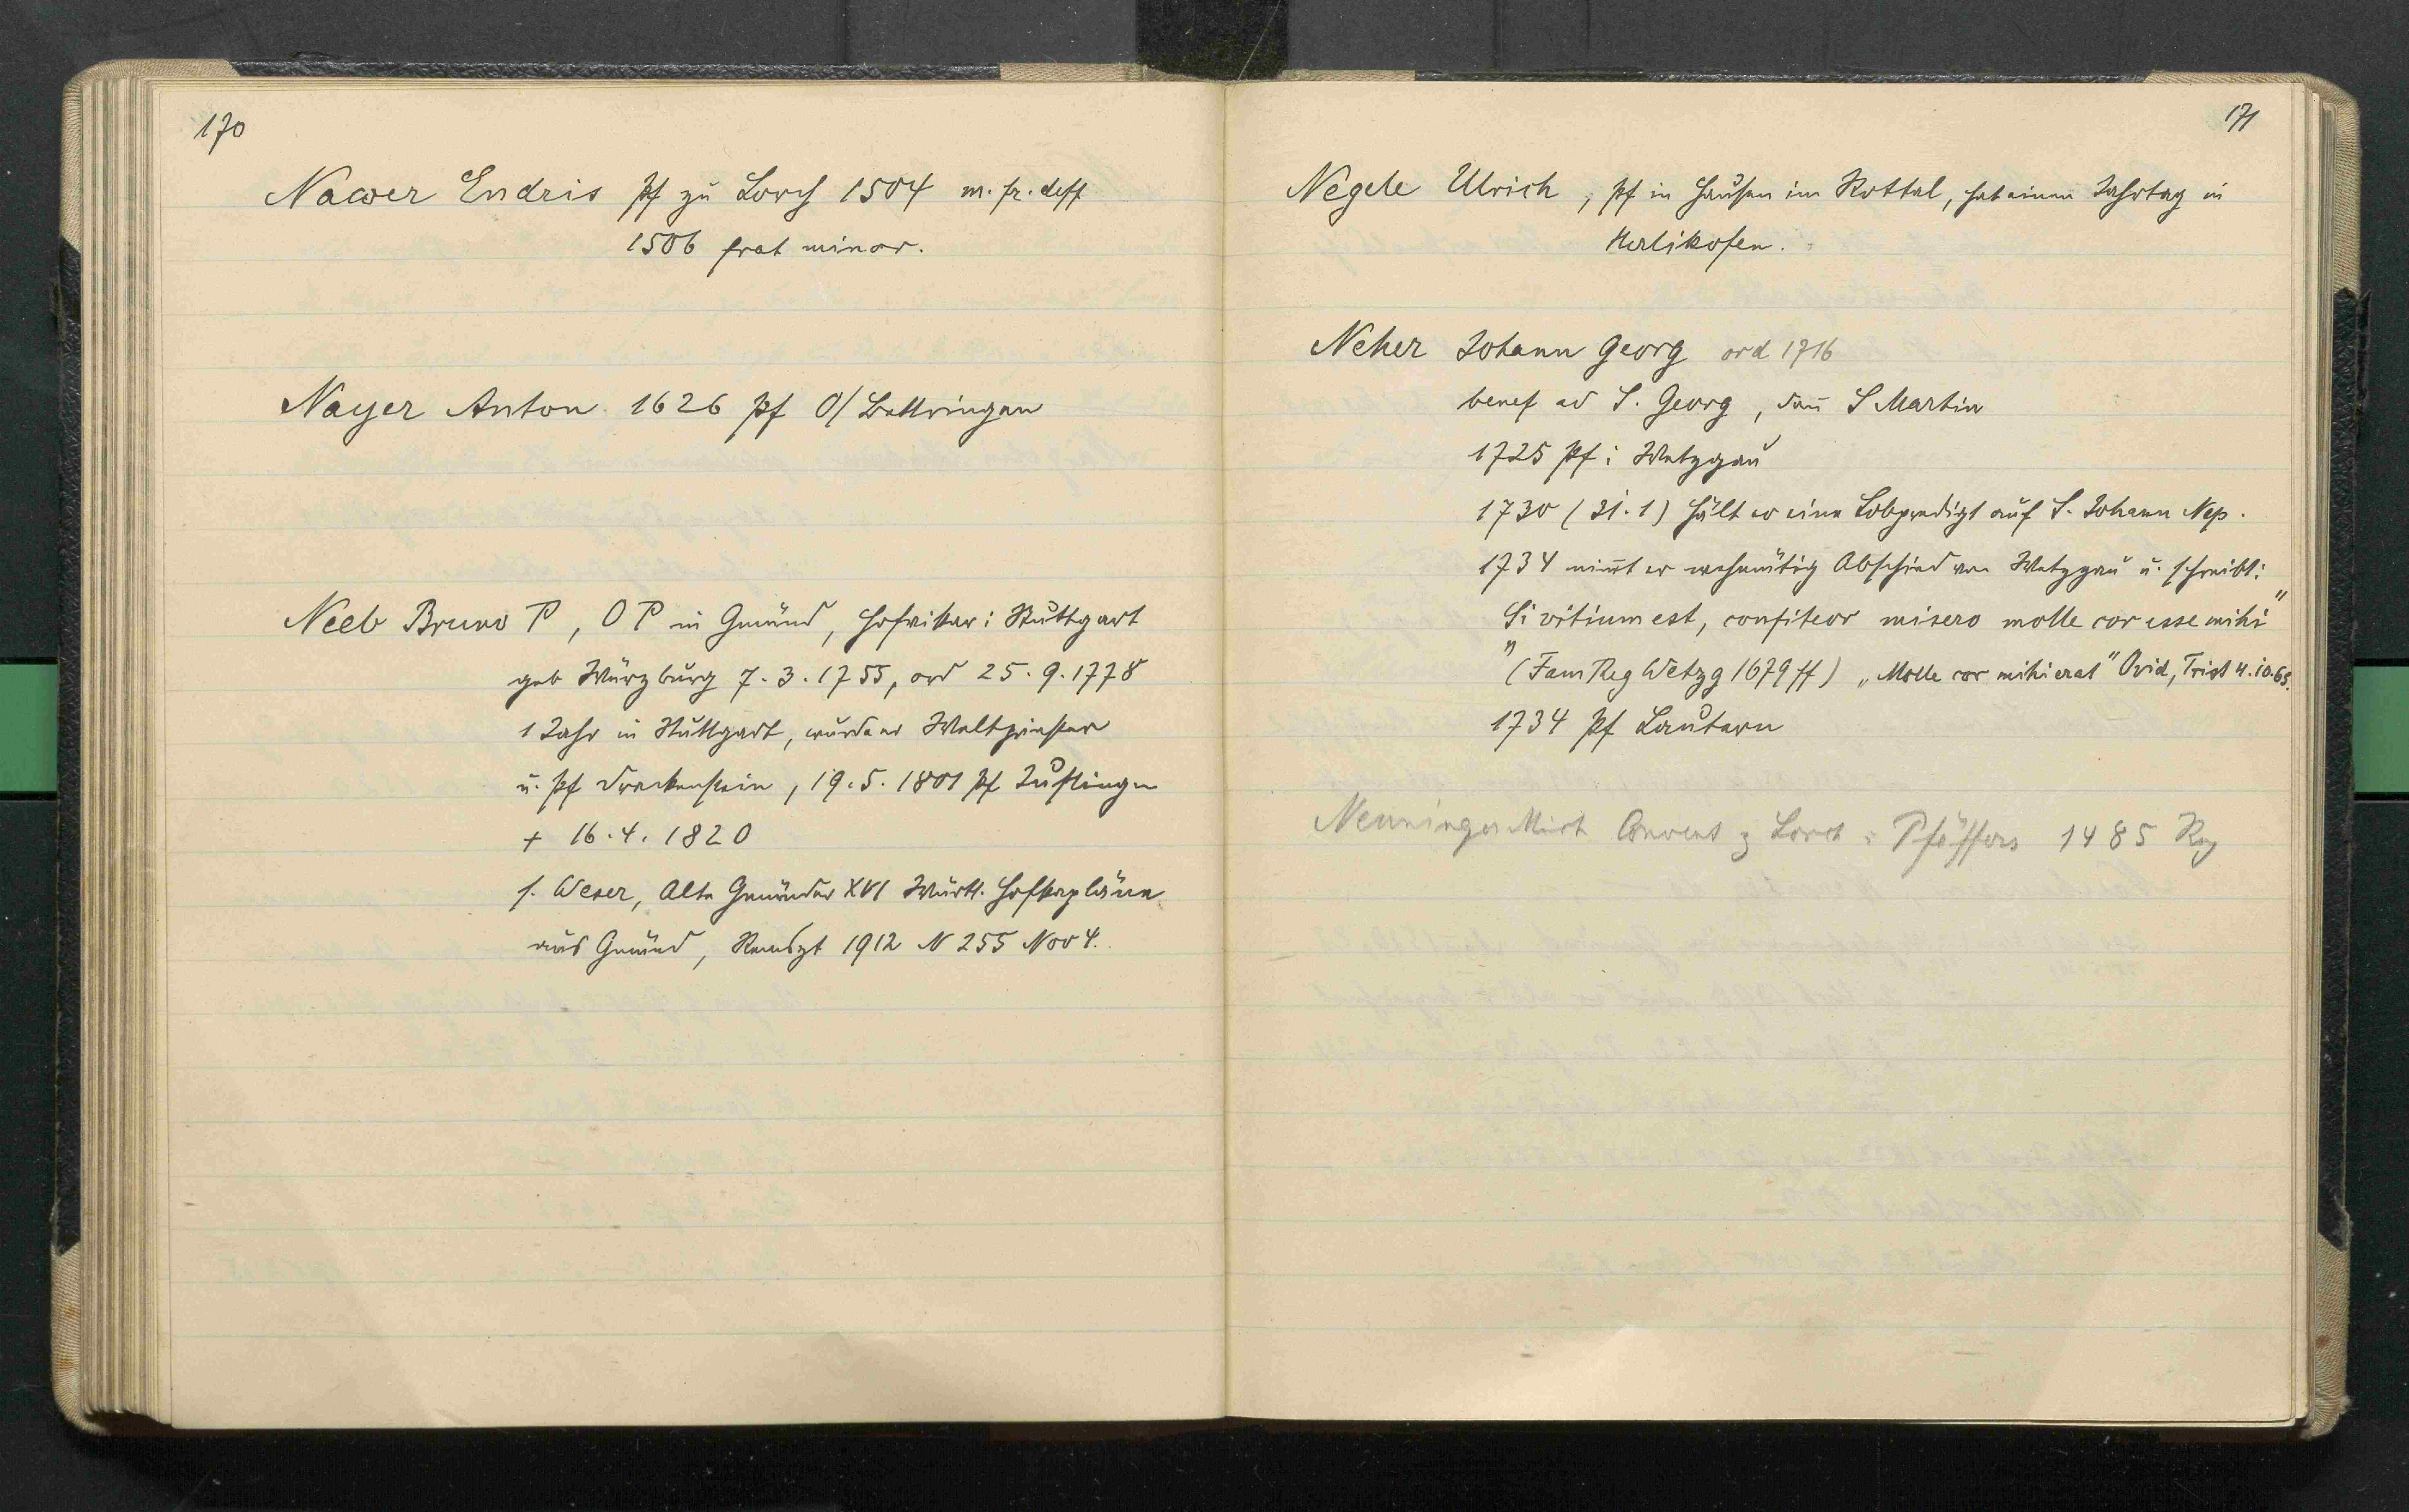 170
Nawer Endris Pf zu Lorch 1504 m. fr. dess
1506 frat minor.
Nayer Anton 1626 Pf O/Bettringen
Neeb Bruno P, O P in Gmünd, Hofvikar i Stuttgart
geb Würzburg 7.3.1755, ord 25.9.1778
1 Jahr in Stuttgart, wurde er Weltpriester
u. Pf Drackenstein, 19.5.1801 Pf Justingen
+ 16.4.1820
s. Weser, Alte Gmünder XVI Württ. Hofkapläne
aus Gmünd, Remszt 1912 N 255 Nov 4.
171
Negele Ulrich, Pf in Hausen im Rottal, hat einen Jahrtag in
Herlikofen.
Neher Johann Georg ord 1716
benef ad S. Georg, dañ S Martin
1725 Pf i Wetzgau
1730 (31.1) hält er eine Lobpredigt auf S. Johann Nep.
1734 nim̄t er wehmütig Abschied von Wetzgau u. schreibt:
"Si vitium est, confiteor misero molle cor esse mihi"
(Fam Reg Wetzg 1679 ff) „Molle cor mihi erat" Ovid, Trist 4.10.65.
1734 Pf Lautern
Nenninger Mich Convent z Lorch i Pfäffers 1485 Reg